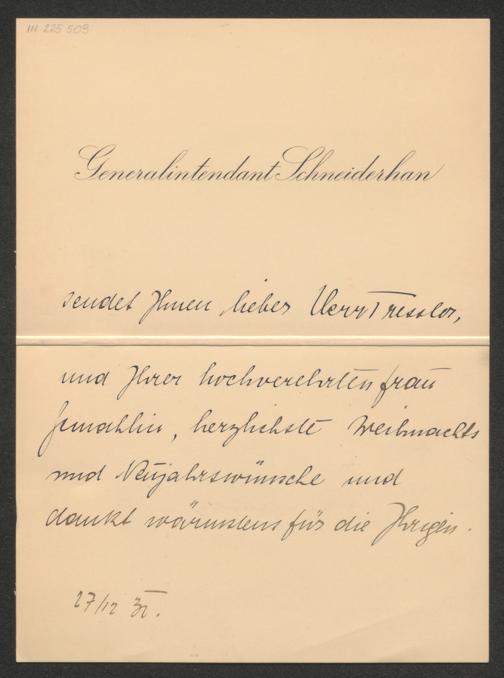 III 225 509
Generalintendant Schneiderhan
sendet Ihnen, lieber Herr Tressler,
und Ihrer hochverehrten Frau
Gemahlin, herzlichste Weihnachts
und Neujahrswünsche und
dankt wärmstens für die Ihrigen.
27/12